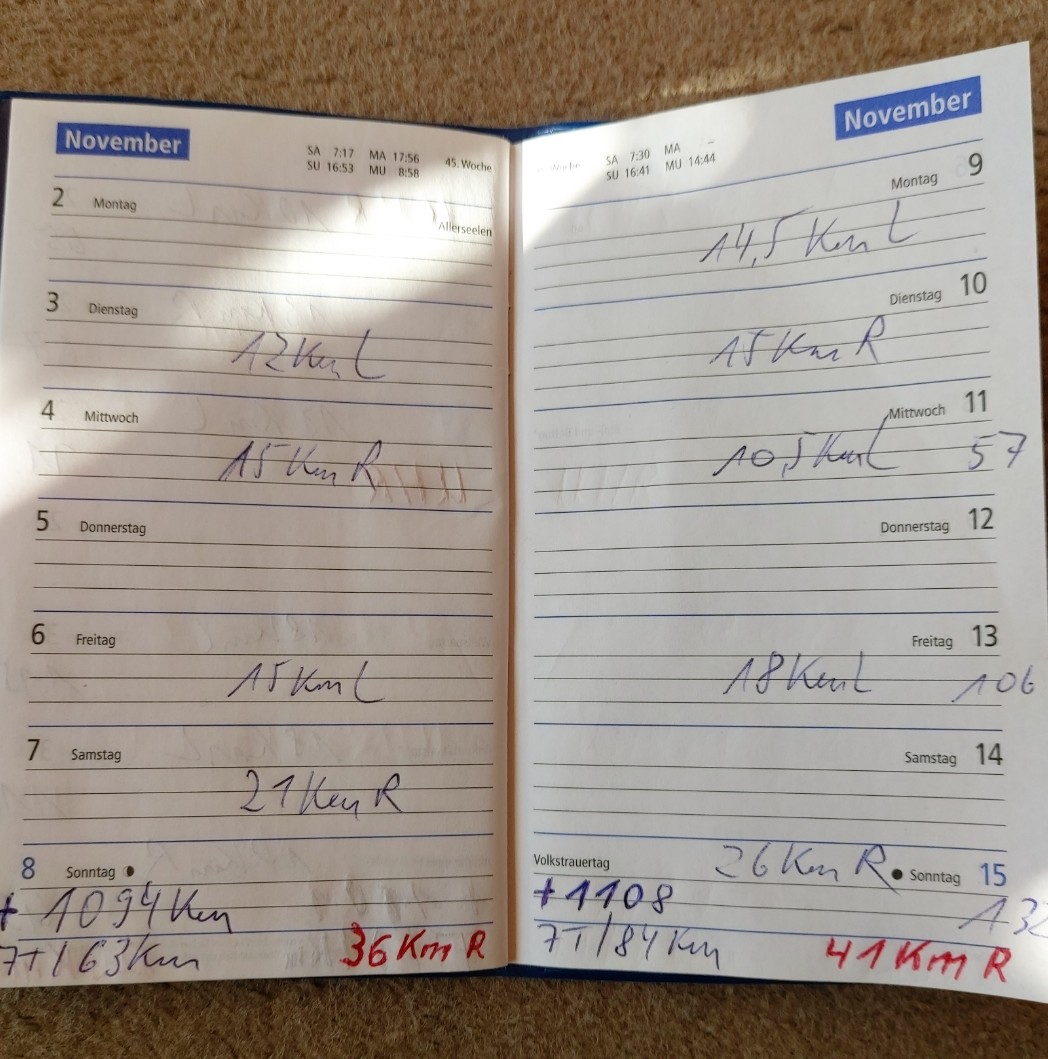 November
SA 7:17 MA 17:56
SU 16:53 MU 8:58
45. Woche
2 Montag
Allerseelen
3 Dienstag
12 Km L
4 Mittwoch
15 Km R
5 Donnerstag
6 Freitag
15 Km L
7 Samstag
21 Km R
8 Sonntag
+ 1094 Km
7T/63 Km
36 Km R
November
Woche
SA 7:30 MA –
SU 16:41 MU 14:44
Montag 9
14,5 Km L
Dienstag 10
15 Km R
Mittwoch 11
10,5 Km L 57
Donnerstag 12
Freitag 13
18 Km L 106
Samstag 14
Volkstrauertag 26 Km R Sonntag 15
+1108 132
7T/84 Km
41 Km R